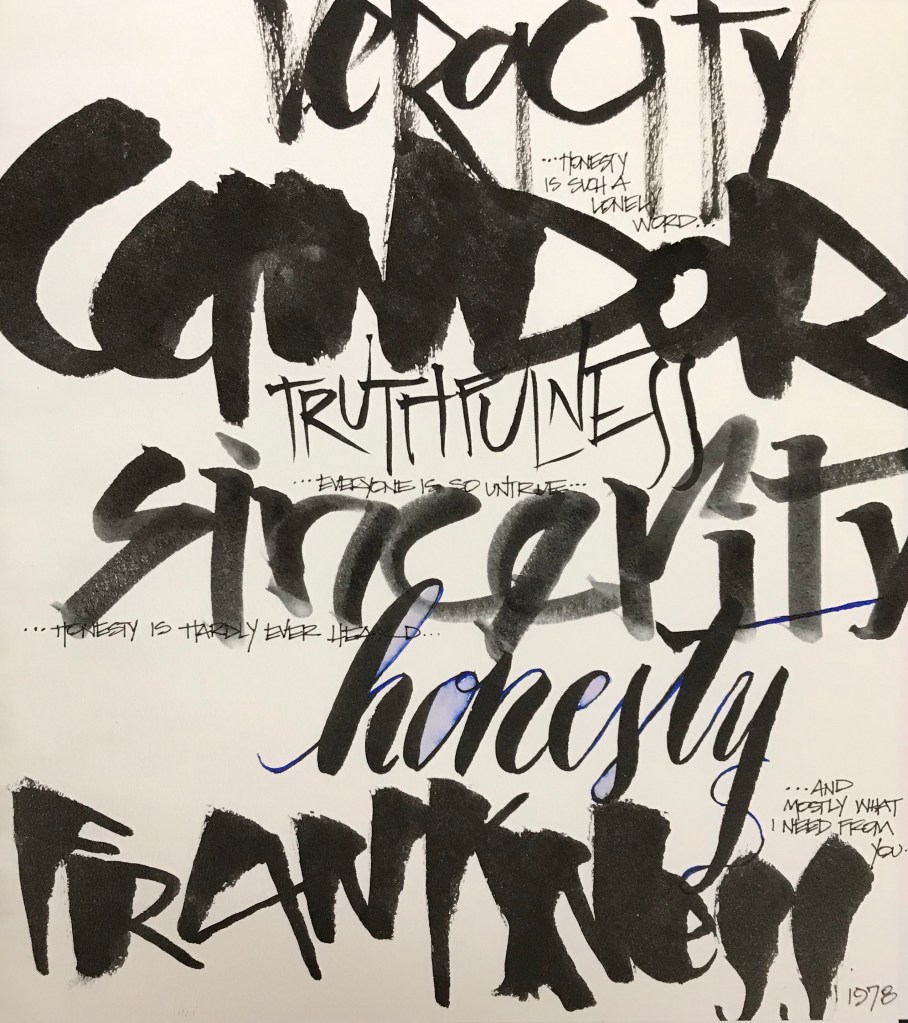 Veracity
...HONESTY
IS SUCH A
LONELY
WORD...
CANDOR
TRUTHFULNESS
...EVERYONE IS SO UNTRUE...
sincerity
...HONESTY IS HARDLY EVER HEARD...
honesty
...AND
MOSTLY WHAT
I NEED FROM
YOU.
FRANKNess
1978